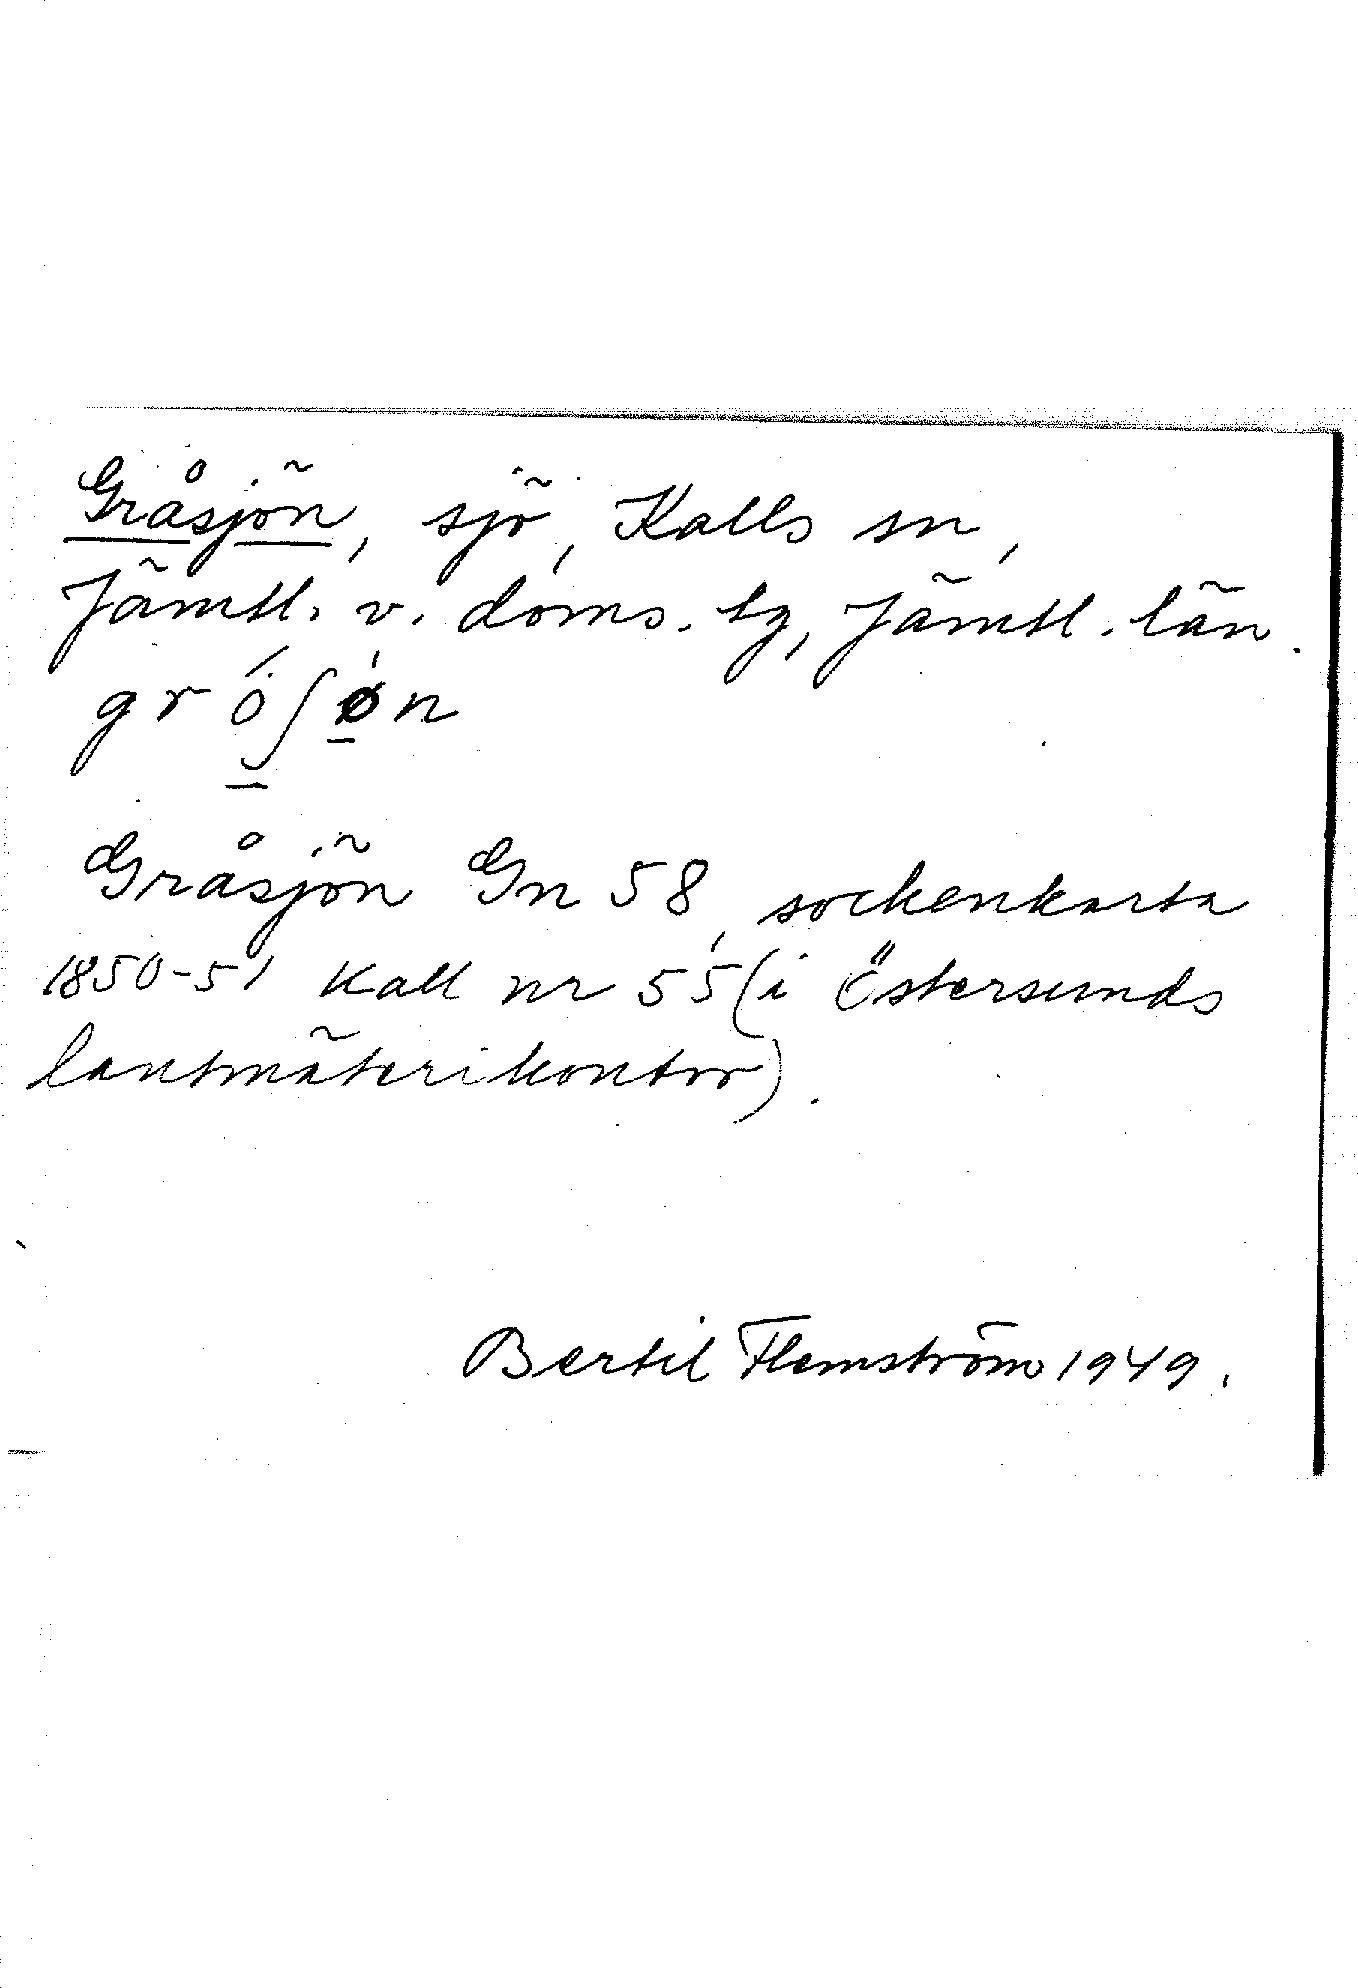 Gråsjön, sjö, Kalls sn,
Jämtl. v. doms. tg, Jämtl. län.
gróʃøn
Gråsjön Gn 58, sockenkarta
1850-51 Kall nr 55 (i Östersunds
lantmäterikontor).
Bertil Flemström 1949.